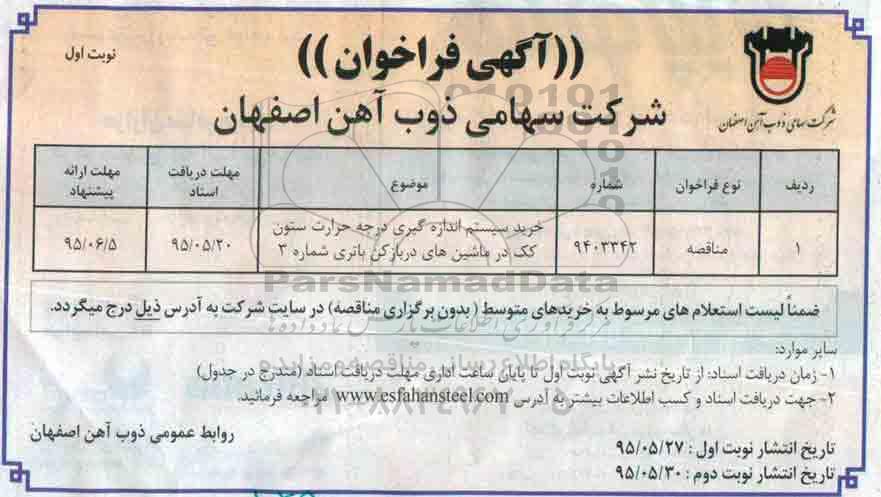 ((آگهی فراخوان))
نوبت اول
شرکت سهامی ذوب آهن اصفهان
شرکت سهامی ذوب آهن اصفهان
ردیف نوع فراخوان شماره موضوع مهلت دریافت اسناد مهلت ارائه پیشنهاد
۱ مناقصه ۹۴۰۳۳۴۲ خرید سیستم اندازه گیری درجه حرارت ستون کک در ماشین های دربازکن باتری شماره ۳ ۹۵/۰۵/۲۰ ۹۵/۰۶/۵
ParsNamadData
ضمناً لیست استعلام های مرسوط به خریدهای متوسط (بدون برگزاری مناقصه) در سایت شرکت به آدرس ذیل درج میگردد.
سایر موارد:
پایگاه اطلاع رسانی مناقصه و مزایده
۱- زمان دریافت اسناد: از تاریخ نشر آگهی نوبت اول تا پایان ساعت اداری مهلت دریافت اسناد (مندرج در جدول)
۲- جهت دریافت اسناد و کسب اطلاعات بیشتر به آدرس www.esfahansteel.com مراجعه فرمائید.
روابط عمومی ذوب آهن اصفهان
تاریخ انتشار نوبت اول : ۹۵/۰۵/۲۷
تاریخ انتشار نوبت دوم : ۹۵/۰۵/۳۰